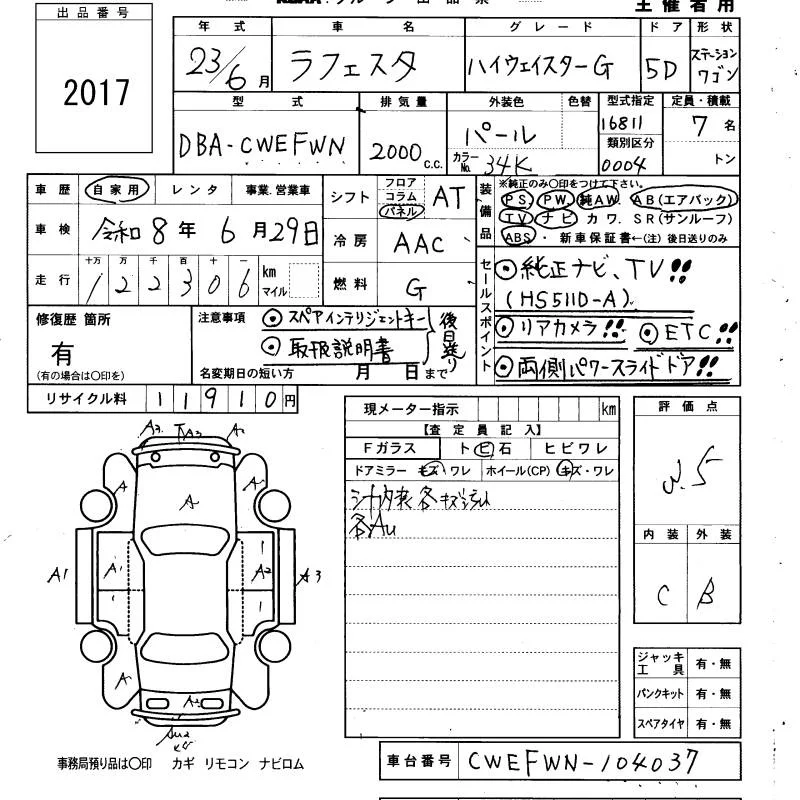 出品番号
2017
主催者用
年式 車名 グレード ドア 形状
23/6月 ラフェスタ ハイウェイスターG 5D ステーションワゴン
型式 排気量 外装色 色替 型式指定 定員・積載
DBA-CWEFWN 2000c.c. パール 16811 7名
カラーNo. 34K 類別区分 0004 トン
車歴 自家用 レンタ 事業.営業車
車検 令和8年6月29日
走行 十万 万 千 百 十 一
122306 km マイル
シフト フロア コラム パネル AT
冷房 AAC
燃料 G
装備品 ※純正のみ〇印をつけて下さい。
PS PW. 純AW. AB(エアバック)
TV ナビ カワ. SR(サンルーフ)
ABS・新車保証書←(注)後日送りのみ
セールスポイント
◎純正ナビ、TV!!
(HS511D-A)
◎リアカメラ!! ◎ETC!!
◎両側パワースライドドア!!
修復歴 箇所
有
(有の場合は〇印を)
注意事項 ◎スペアインテリジェントキー
◎取扱説明書
後日送り
名変期日の短い方 月 日まで
リサイクル料 11910円
現メーター指示 km
【査定員記入】
Fガラス トビ石 ヒビワレ
ドアミラー キズ・ワレ ホイール(CP) キズ・ワレ
各Au
評価点
3.5
内装 外装
C B
ジャッキ工具 有・無
パンクキット 有・無
スペアタイヤ 有・無
A3 A3 A2
A A A
A1 A1 A2 A3
1 1 1 1
A A2 A
事務局預り品は〇印 カギ リモコン ナビロム
車台番号 CWEFWN-104037